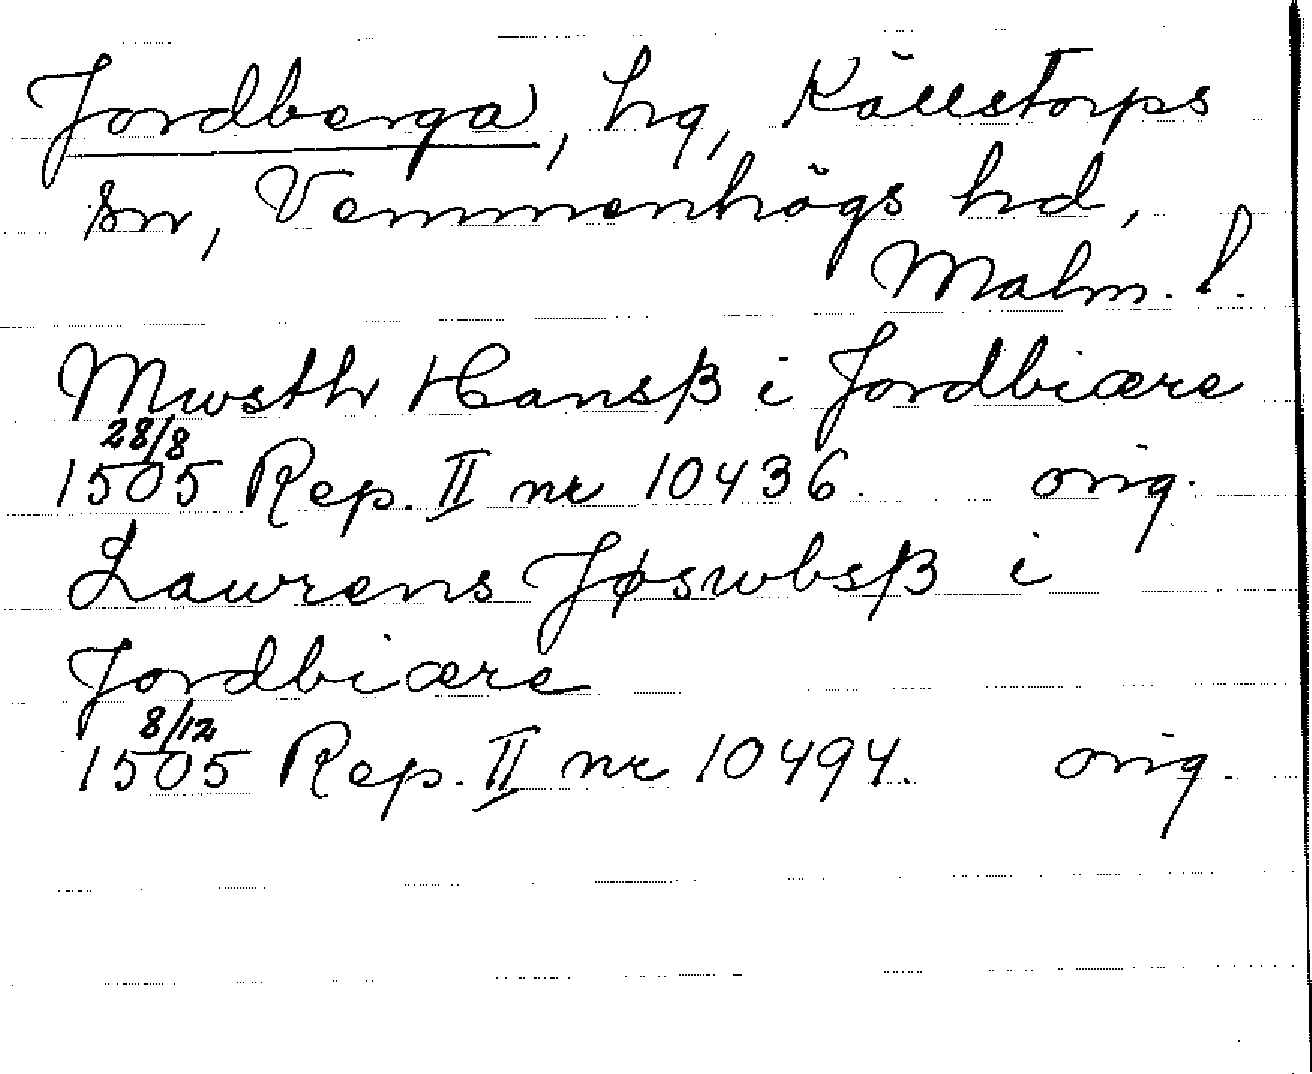 Jordberga, hg, Källstorps
sn, Vemmenhögs hd,
Malm. l.
Mwsth Hansß i Jordbiære
28/8
1505 Rep. II nr 10436. orig.
Lawrens Jøswbsß i
Jordbiære
8/12
1505 Rep. II nr 10494. orig.